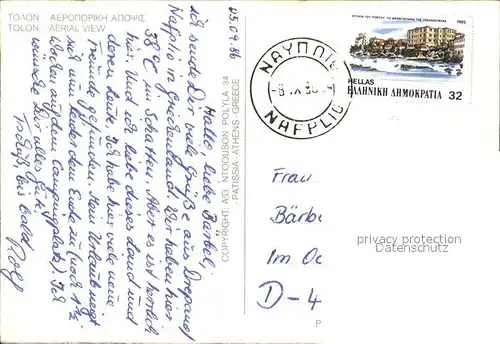 ΤΟΛΟΝ ΑΕΡΟΠΟΡΙΚΗ ΑΠΟΨΙΣ
TOLON AERIAL VIEW
05.09.86
Hallo, liebe Bärbel,
ich sende Dir viele Grüße aus Drepano/
Nafplio in Griechenland. Wir haben hier
38°C im Schatten. Aber es ist herrlich
hier. Und ich liebe dieses Land und
deren Leute. Ich habe hier viele neue
Freunde gefunden. Mein Urlaub neigt
sich nun wieder dem Ende zu (nur 1 1/2
Wochen auf dem Campingplatz). Ich
wünsche Dir alles Gute
Tschüß, bis bald
Rolf
COPYRIGHT: ΑΦ. NTOOUSON POLYLA 34
-PATISSIA-ATHENS-GREECE-
ΝΑΥΠΛΙΟ
NAFPLIO
1986
HELLAS
ΕΛΛΗΝΙΚΗ ΔΗΜΟΚΡΑΤΙΑ 32
Frau
Bärbe
Im Oc
D-4
privacy protection
Datenschutz
P